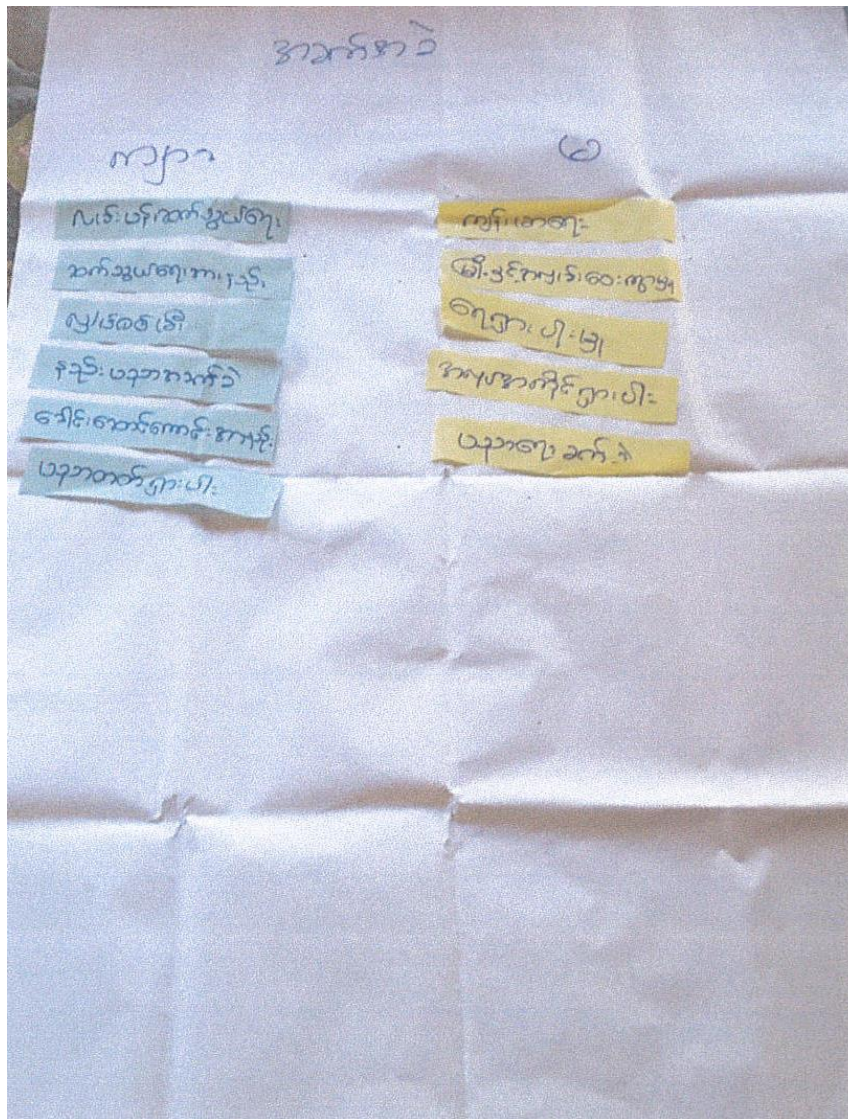 အခက်အခဲ
ကျား
မ
လမ်းပန်းဆက်သွယ်ရေး
ဆက်သွယ်ရေးအားနည်း
လျှပ်စစ်မီး
နည်းပညာအခက်ခဲ
ခေါင်းဆောင်ကောင်းအားနည်း
ပညာတတ်ရှားပါး
ကျန်းမာရေး
မြို့နှင့်အလှမ်းဝေးကွာမှု
ရေရှားပါးမှု
အလုပ်အကိုင်ရှားပါး
ပညာရေးခက်ခဲ